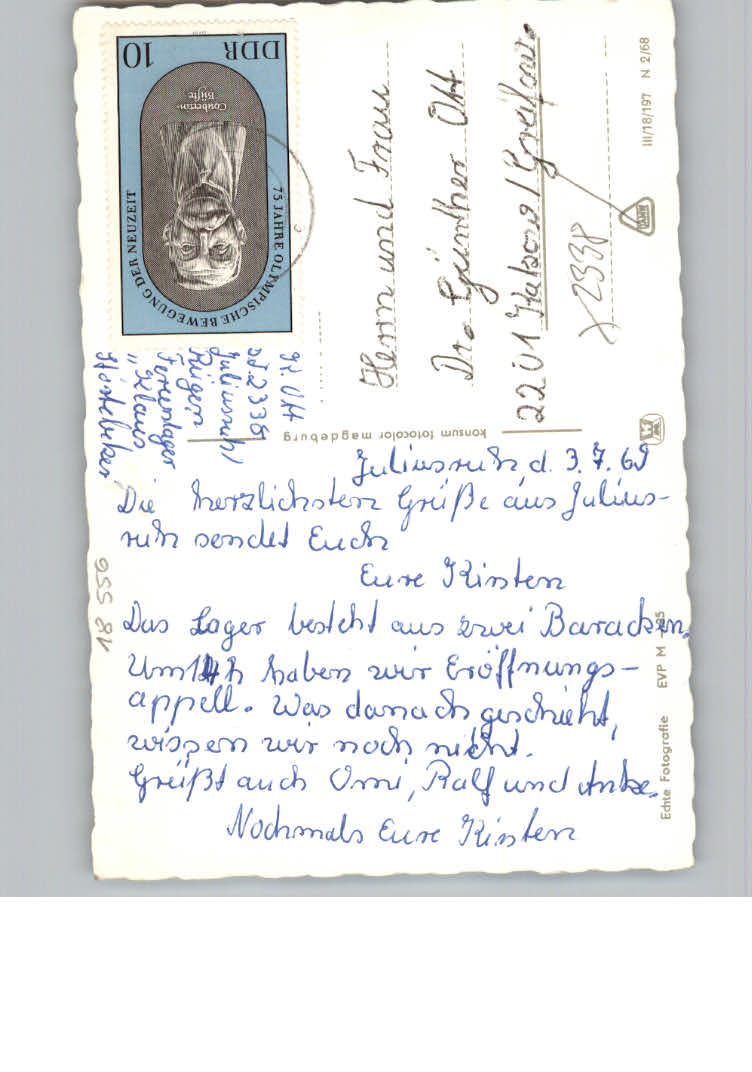 DDR
10
Coubertin-
Büste
75 JAHRE OLYMPISCHE BEWEGUNG DER NEUZEIT
Herrn und Frau
Dr. Günther Ott
2201 /Greifsw.
2338
III/18/197 N 2/68
K. Ott
2338
Juliusruh/
Rügen
Ferienlager
"Klaus
Störtebeker
konsum fotocolor magdeburg
Juliusruh d. 3.7.69
Die herzlichsten Grüße aus Julius-
ruh sendet Euch
Eure Kirsten
Das Lager besteht aus zwei Baracken.
Um 14 h haben wir Eröffnungs-
appell. Was danach geschieht,
wissen wir noch nicht.
Grüßt auch Omi, Ralf und Anke.
Nochmals Eure Kirsten
18 556
Echte Fotografie EVP M